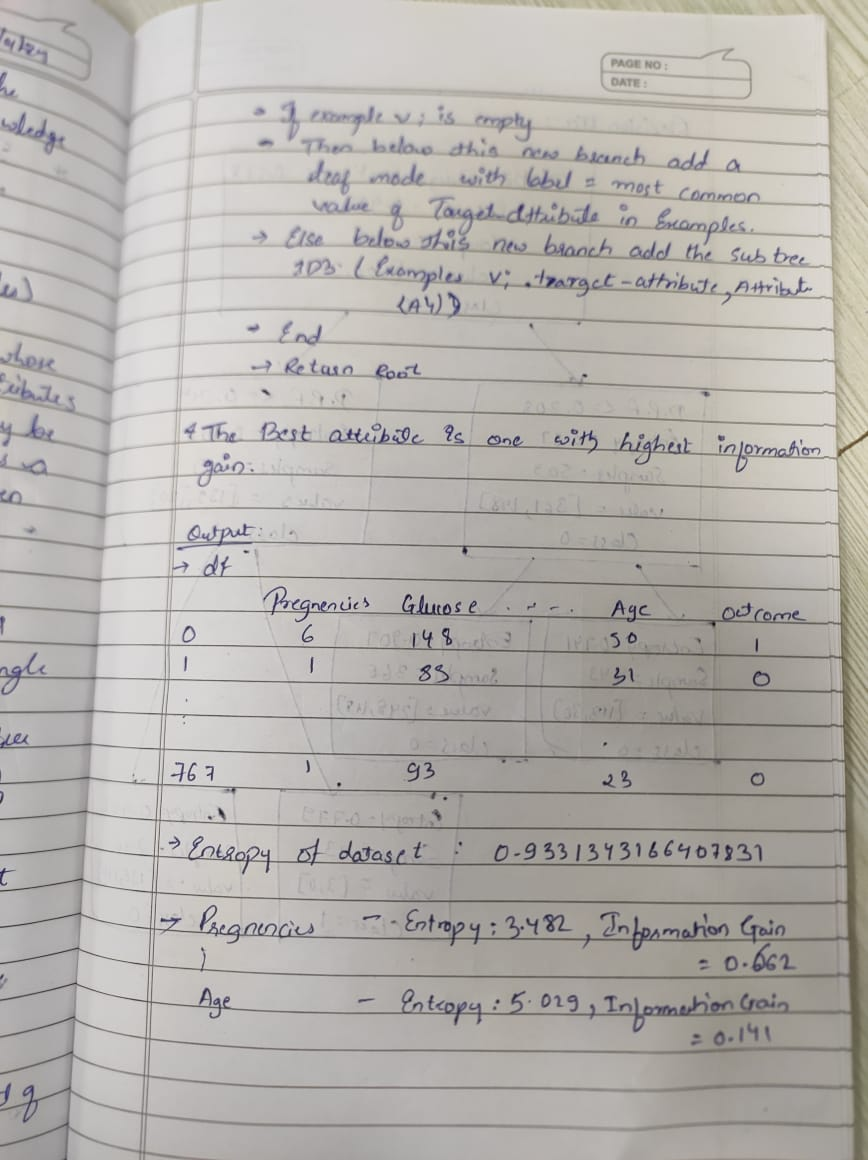 PAGE NO :
DATE :
• If example vi is empty
- Then below this new branch add a
leaf node with label = most common
value of Target-Attribute in Examples.
→ Else below this new branch add the sub tree
ID3 (Examples vi, target-attribute, Attribut
(A4))
→ End
→ Return Root
* The Best attribute is one with highest information
gain.
Output:
→ df
Pregnencies Glucose . - - . Age . Outcome
0 6 148 50 1
1 1 85 31 0
:
767 1 93 23 0
→ Entropy of dataset : 0.9331343166407831
→ Pregnencies - - Entropy : 3.482 , Information Gain
= 0.062
Age - Entropy : 5.029 , Information Gain
= 0.141
he
wledge
whose
tributes
y be
en
ngle
t